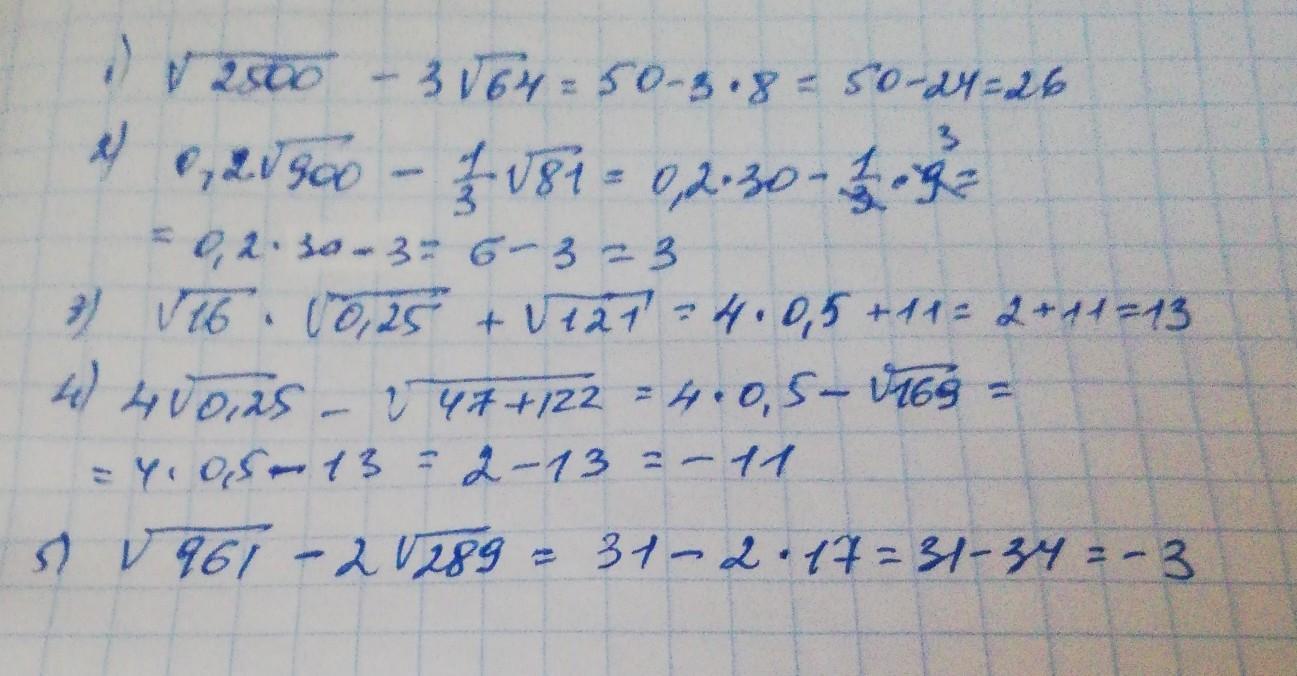 1) √2500 - 3√64 = 50-3·8 = 50-24=26
2) 0,2√900 - 1/3 √81 = 0,2·30 - 1/3 · 9 3 =
= 0,2·30-3= 6-3 = 3
3) √16 · √0,25 + √121 = 4·0,5+11= 2+11=13
4) 4√0,25 - √47+122 = 4·0,5-√169 =
= 4·0,5-13 = 2-13 = -11
5) √961 - 2√289 = 31-2·17=31-34=-3